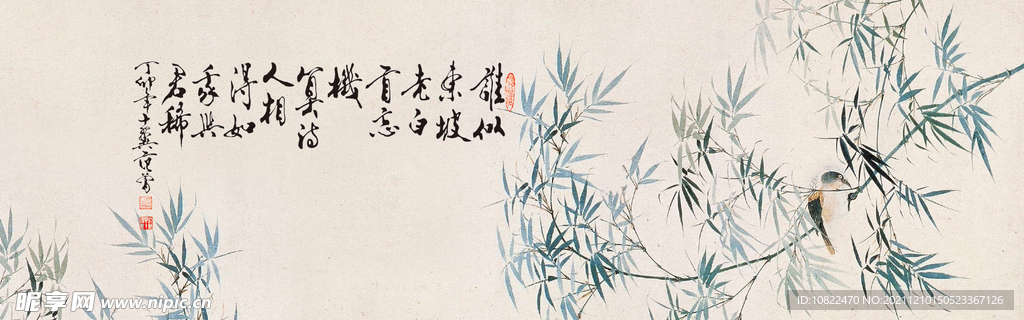 誰似
東坡
老白
首忘
機
算詩
人相
得如
我與
君稀
丁卯年十翼范曾
昵享网 www.nipic.cn
ID:10822470 NO:20211210150523367126